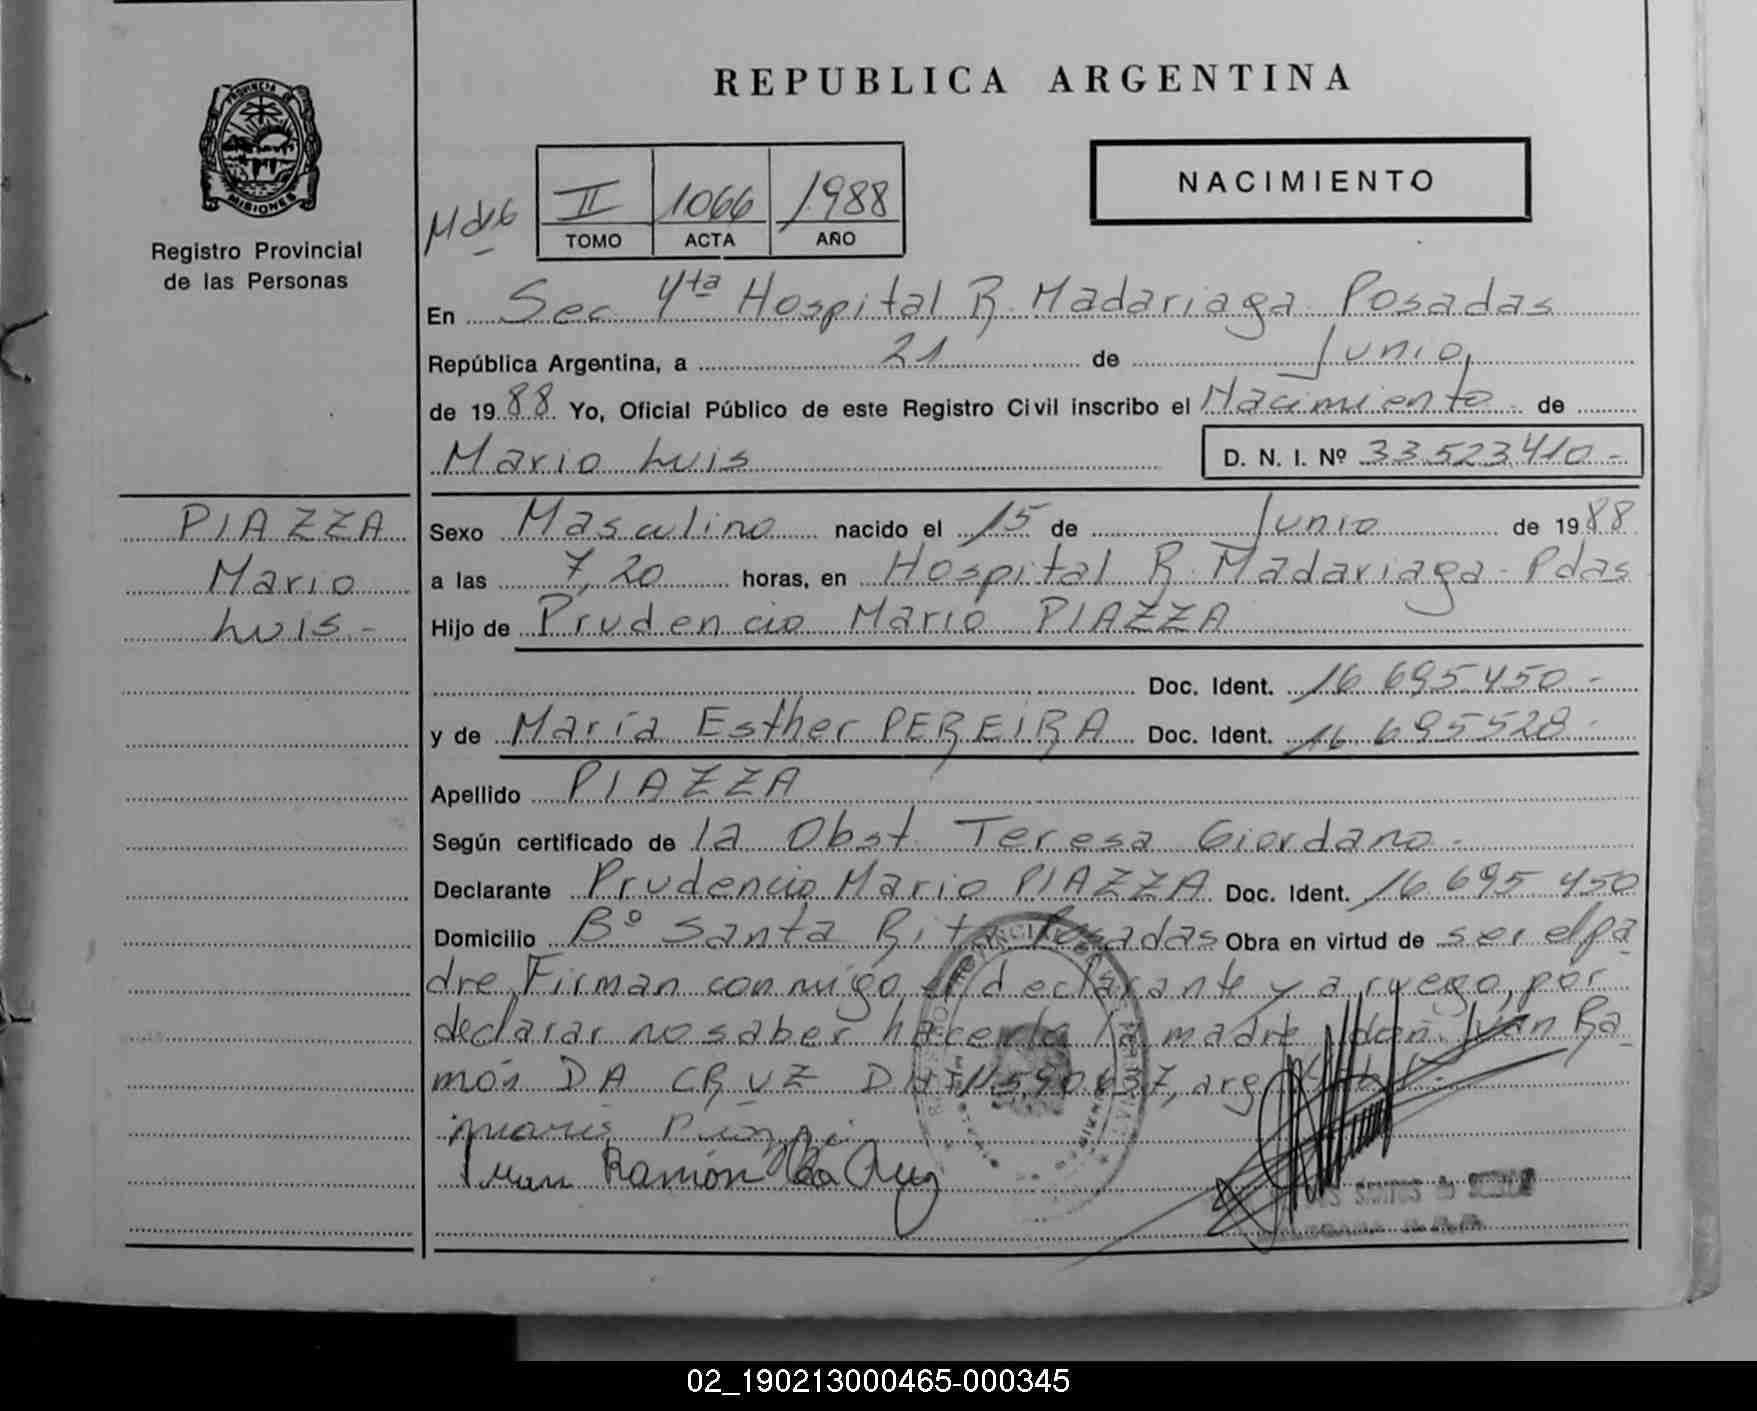 REPUBLICA ARGENTINA
PROVINCIA DE
MISIONES
Registro Provincial
de las Personas
II 1066 1988
TOMO ACTA AÑO
NACIMIENTO
En Sec 4ta Hospital R. Madariaga Posadas
República Argentina, a 21 de Junio,
de 1988 Yo, Oficial Público de este Registro Civil inscribo el Nacimiento de
Mario Luis D. N. I. Nº 33.523.410-
PIAZZA
Mario
Luis.-
Sexo Masculino nacido el 15 de Junio de 1988
a las 7,20 horas, en Hospital R. Madariaga - Pdas
Hijo de Prudencio Mario PIAZZA
Doc. Ident. 16.695.450.-
y de María Esther PEREIRA Doc. Ident. 16.695528.-
Apellido PIAZZA
Según certificado de la Obst. Teresa Giordano.-
Declarante Prudencio Mario PIAZZA Doc. Ident. 16.695.450
Domicilio Bº Santa Rita Posadas Obra en virtud de ser el pa
dre. Firman conmigo, el declarante y a ruego, por
declarar no saber hacerlo la madre, don Juan Ra
món DA CRUZ DNI, arg
Juan Ramón Da Cruz
02_190213000465-000345